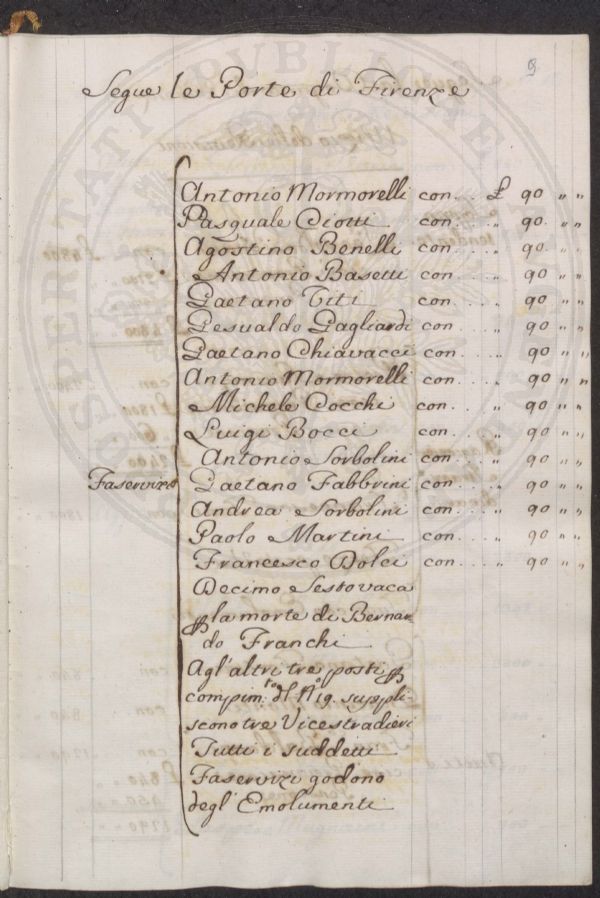 9
Segue le Porte di Firenze
Antonio Mormorelli con... £ 90 " "
Pasquale Ciotti con.... " 90. " "
Agostino Benelli con.... " 90. " "
Antonio Basetti con.... " 90 " "
Gaetano Titi con.... " 90 " "
Gesualdo Gagliardi con.... " 90 " "
Gaetano Chiavacci con.... " 90 " "
Antonio Mormorelli con.... " 90 " "
Michele Cocchi con.... " 90 " "
Luigi Bocci con.... " 90 " "
Antonio Sorbolini con.... " 90 " "
Faservizi Gaetano Fabbrini con.... " 90 " "
Andrea Sorbolini con.... " 90 " "
Paolo Martini con.... " 90 " "
Francesco Dolci con.... " 90 " "
Decimo Sesto vaca
p la morte di Bernar-
do Franchi
Agl'altri tre posti p
compim:to dl N.o 19. suppli-
scono tre Vicestradieri
Tutti i suddetti
Faservizi godono
degl'Emolumenti